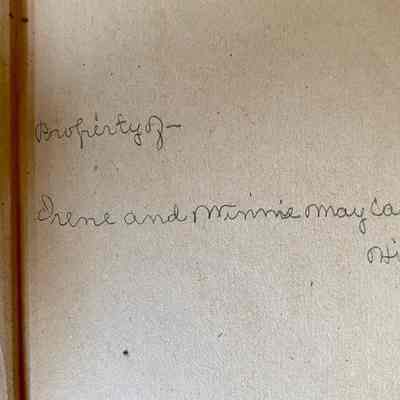 Property of—
Irene and Winnie May Ca
Hi